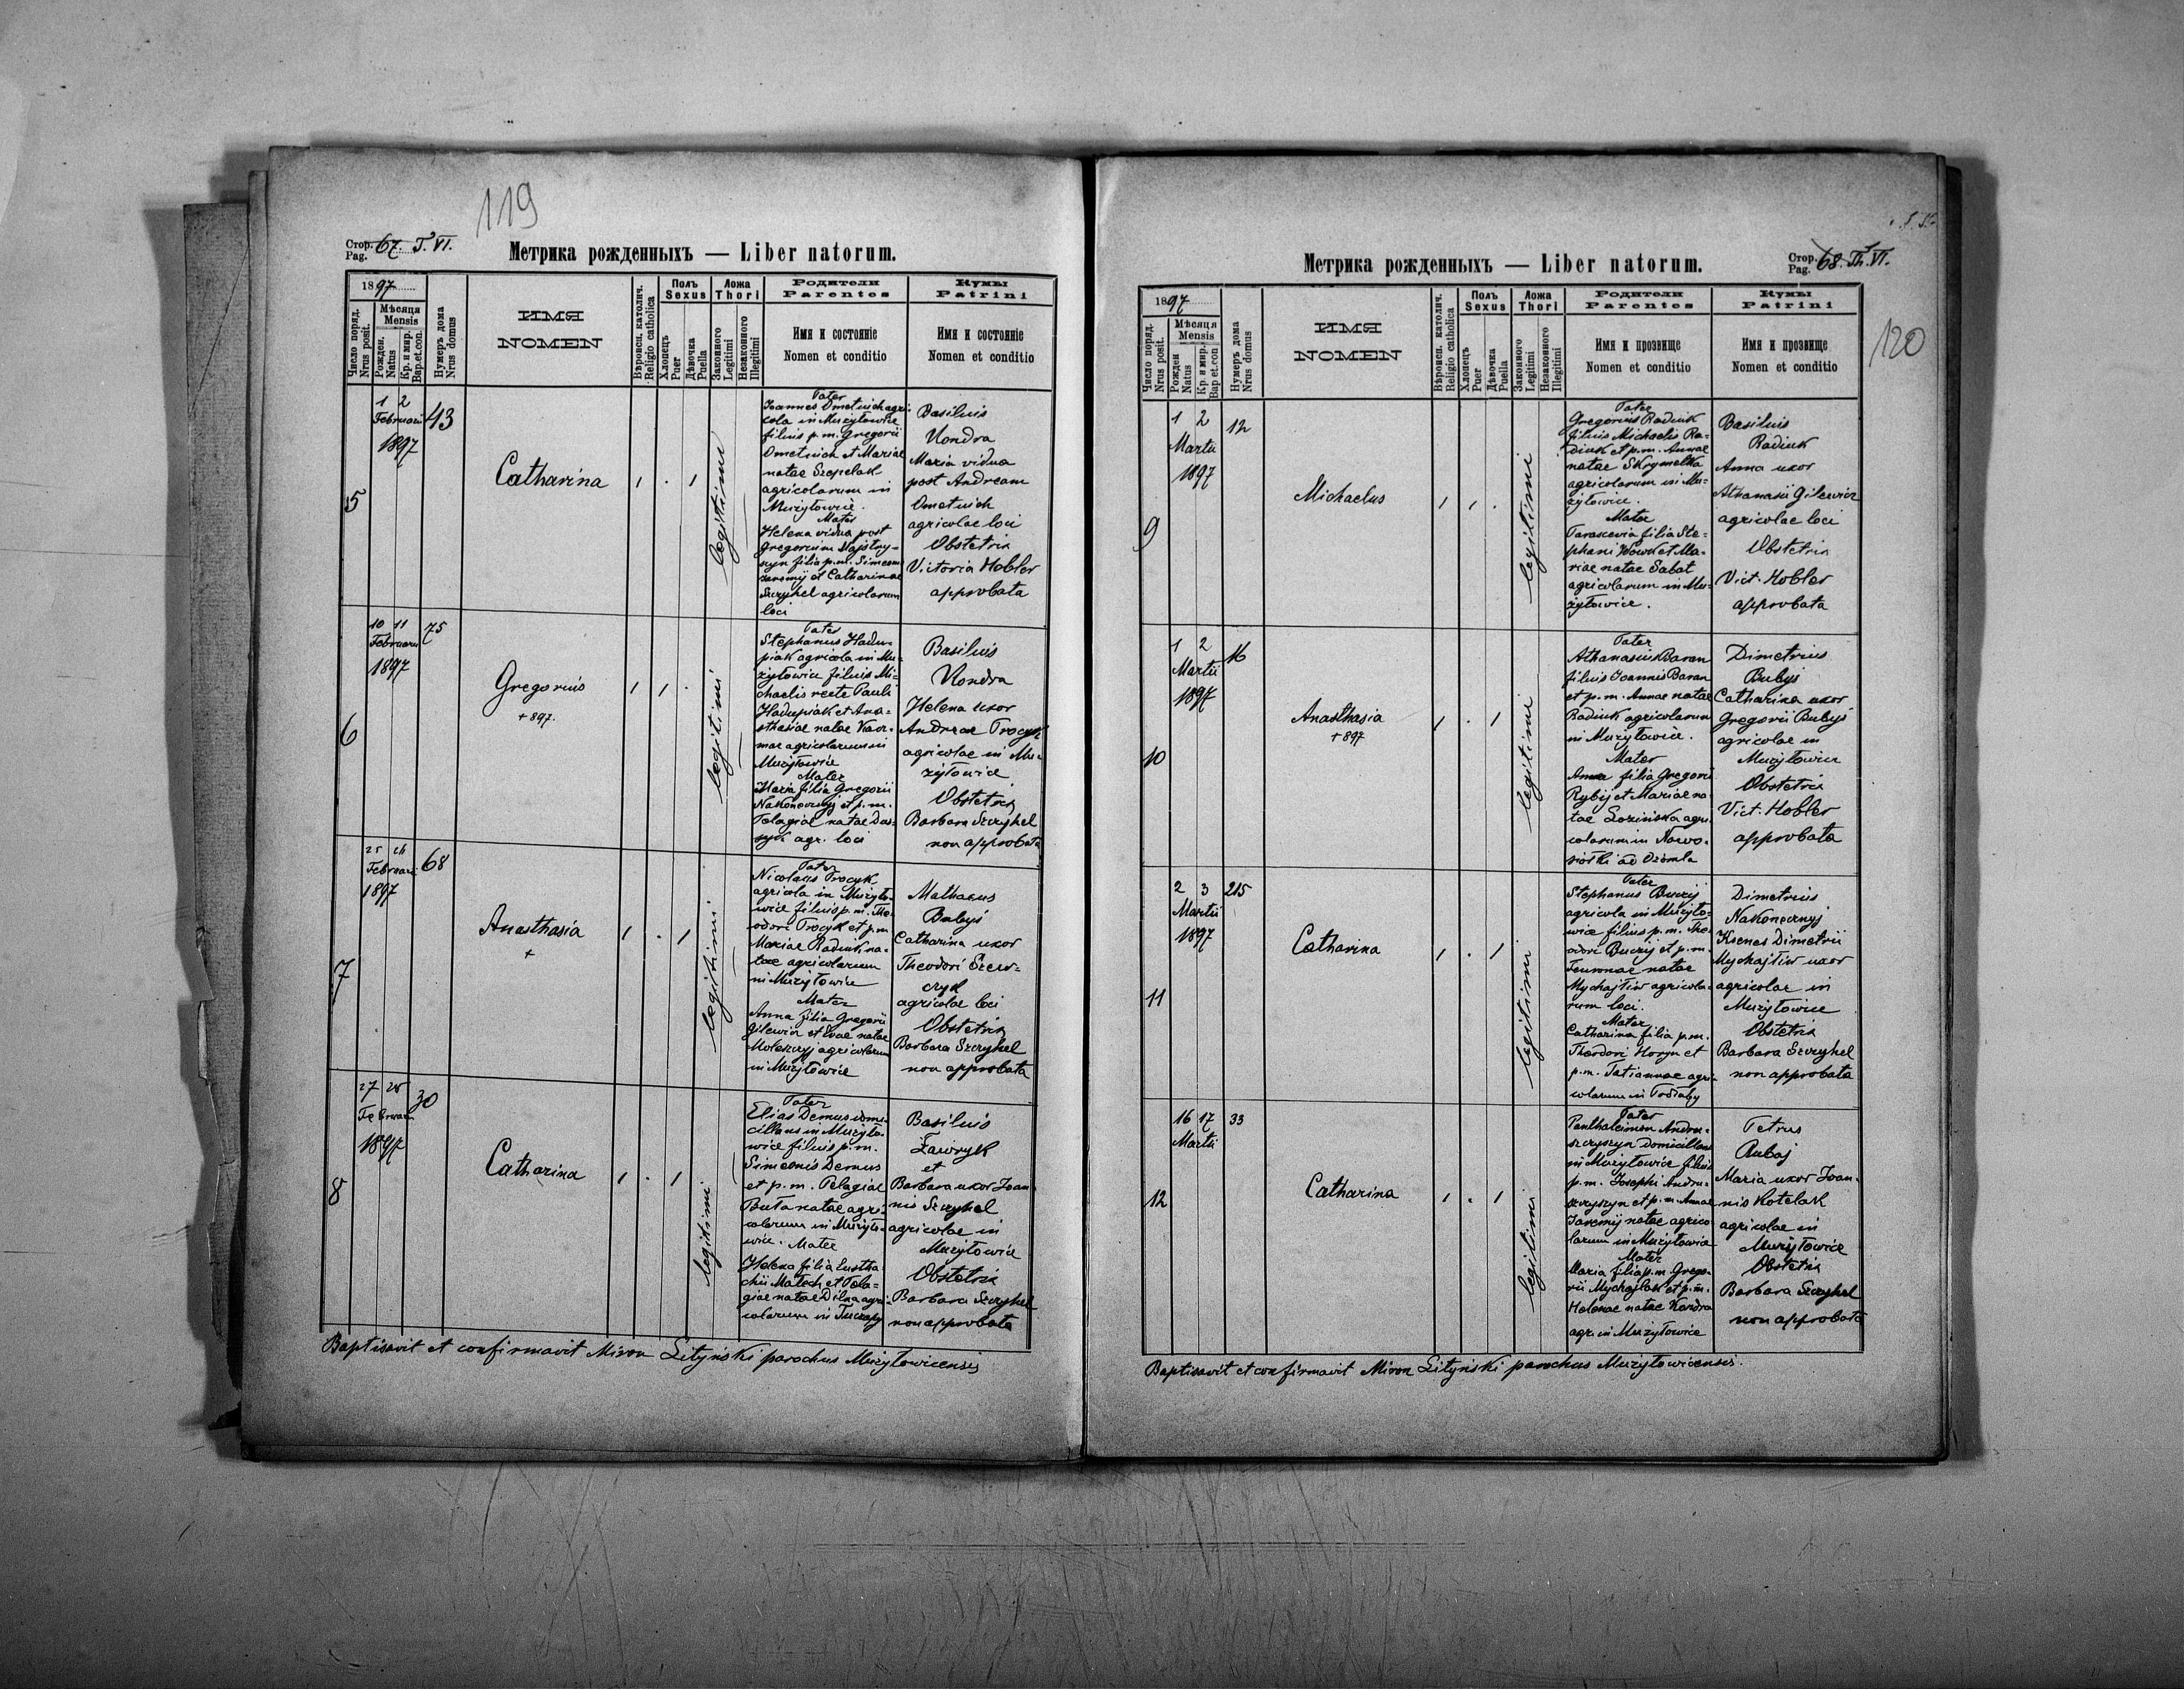 119
Стор. Pag. 67. T. VI.
Метрика рожденныхъ — Liber natorum.
1897
Число поряд. Nrus posit.
Мѣсяця Mensis
Рожден. Natus
Кр. и мир. Bap. et. con.
Нумеръ дома Nrus domus
ИМЯ
NOMEN
Вѣроисп. католич. Religio catholica
Полъ Sexus
Хлопецъ Puer
Дѣвочка Puella
Ложа Thori
Законного Legitimi
Незаконного Illegitimi
Родители Parentes
Имя и состояніе
Nomen et conditio
Кумы Patrini
Имя и состояніе
Nomen et conditio
5
1 2
Februarii
1897
43
Catharina
legitimi
Pater
Joannes Ometiuch agri-
cola in Mużyłowice
filius p.m. Gregorii
Ometiuch et Mariae
natae Szepelak
agricolarum in
Mużyłowice.
Mater
Helena vidua post
Gregorium
filia p.m. Simeon
et Catharinae
Szczyhel agricolarum
loci
Basilius
Kondra
Maria vidua
post Andream
Ometiuch
agricolae loci
Obstetrix
Victoria Hobler
approbata
6
10 11
Februarii
1897
75
Gregorius
+ 897.
legitimi
Pater
Stephanus Hadu-
piak agricola in Mu-
żyłowice filius Mi-
chaelis recte Pauli
Hadupiak et Ana-
sthasiae natae
agricolarum in
Mużyłowice
Mater
Maria filia Gregorii
Nakonecznyj et p.m.
Pelagiae natae Das-
agr. loci
Basilius
Kondra
Helena uxor
Andreae Trocyk
agricolae in Mu-
żyłowice
Obstetrix
Barbara Szczyhel
non approbata
7
25 26
Februarii
1897
68
Anasthasia
+
legitimi
Pater
Nicolaus Trocyk
agricola in Mużyło-
wice filius p.m. The-
odori Trocyk et p.m.
Mariae Radiuk na-
tae agricolarum
in Mużyłowice
Mater
Anna filia Gregorii
Gilewicz et Evae natae
Moleszczyj agricolarum
in Mużyłowice
Mathaeus
Bubyś
Catharina uxor
Theodori Szew-
czyk
agricolae loci
Obstetrix
Barbara Szczyhel
non approbata
8
27 28
Februarii
1897
30
Catharina
legitimi
Pater
Elias Demus domi-
cilians in Mużyło-
wice filius p.m.
Simeonis Demus
et p.m. Pelagiae
Buta natae agri-
colarum in Mużyło-
wice. Mater
Helena filia Eustha-
chii Matech et Pela-
giae natae Dilna agri-
colarum in Tuczapy
Basilius
Ławryk
et
Barbara uxor Joan-
nis Szczyhel
agricolae in
Mużyłowice
Obstetrix
Barbara Szczyhel
non approbata
Baptisavit et confirmavit Miron Lityński parochus Mużyłowicensis
Метрика рожденныхъ — Liber natorum.
Стор. Pag. 68. T. VI.
120
1897
Число поряд. Nrus posit.
Мѣсяця Mensis
Рожден Natus
Кр. и мир. Bap et. con
Нумеръ дома Nrus domus
ИМЯ
NOMEN
Вѣроисп. католич. Religio catholica
Полъ Sexus
Хлопецъ Puer
Дѣвочка Puella
Ложа Thori
Законного Legitimi
Незаконного Illegitimi
Родители Parentes
Имя и прозвище
Nomen et conditio
Кумы Patrini
Имя и прозвище
Nomen et conditio
9
1 2
Martii
1897
12
Michaelus
legitimi
Pater
Gregorius Radiuk
filius Michaelis Ra-
diuk et p.m. Annae
natae Skrymetka
agricolarum in Mu-
żyłowice.
Mater
Parascevia filia Ste-
phani Wowk et Ma-
riae natae Sabat
agricolarum in Mu-
żyłowice.
Basilius
Radiuk
Anna uxor
Athanasii Gilewicz
agricolae loci
Obstetrix
Vict. Hobler
approbata
10
1 2
Martii
1897
16
Anasthasia
+ 897
legitimi
Pater
Athanasius Baran
filius Joannis Baran
et p.m. Annae natae
Radiuk agricolarum
in Mużyłowice.
Mater
Anna filia Gregorii
Rybij et Mariae na-
tae Łozińska agri-
colarum in Nowo-
siołki ad Ożomla
Dimetrius
Bubyś
Catharina uxor
Gregorii Bubyś
agricolae in
Mużyłowice
Obstetrix
Vict. Hobler
approbata
11
2 3
Martii
1897
215
Catharina
legitimi
Pater
Stephanus Buczij
agricola in Mużyło-
wice filius p.m. The-
odori Buczij et p.m.
natae
Mychajliw agricola-
rum loci.
Mater
Catharina filia p.m.
Theodori Horyn et
p.m. Tatiannae agri-
colarum in Podłuby
Dimetrius
Nakonecznyj
Ksenes Dimetrii
Mychajliw uxor
agricolae in
Mużyłowice
Obstetrix
Barbara Szczyhel
non approbata
12
16 17
Martii
33
Catharina
legitimi
Pater
Panthaleimon Andru-
szczyszyn domicilians
in Mużyłowice filius
p.m. Josephi Andru-
szczyszyn et p.m. Annae
Jaremij natae agrico-
larum in Mużyłowice
Mater
Maria filia p.m. Grego-
rii Mychajlak et p.m.
Helenae natae Kondra
agr. in Mużyłowice
Petrus
Rubaj
Maria uxor Joan-
nis Kotelak
agricolae in
Mużyłowice
Obstetrix
Barbara Szczyhel
non approbata
Baptisavit et confirmavit Miron Lityński parochus Mużyłowicensis.